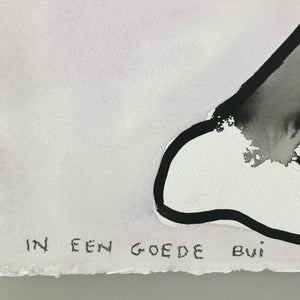 IN EEN GOEDE BUi